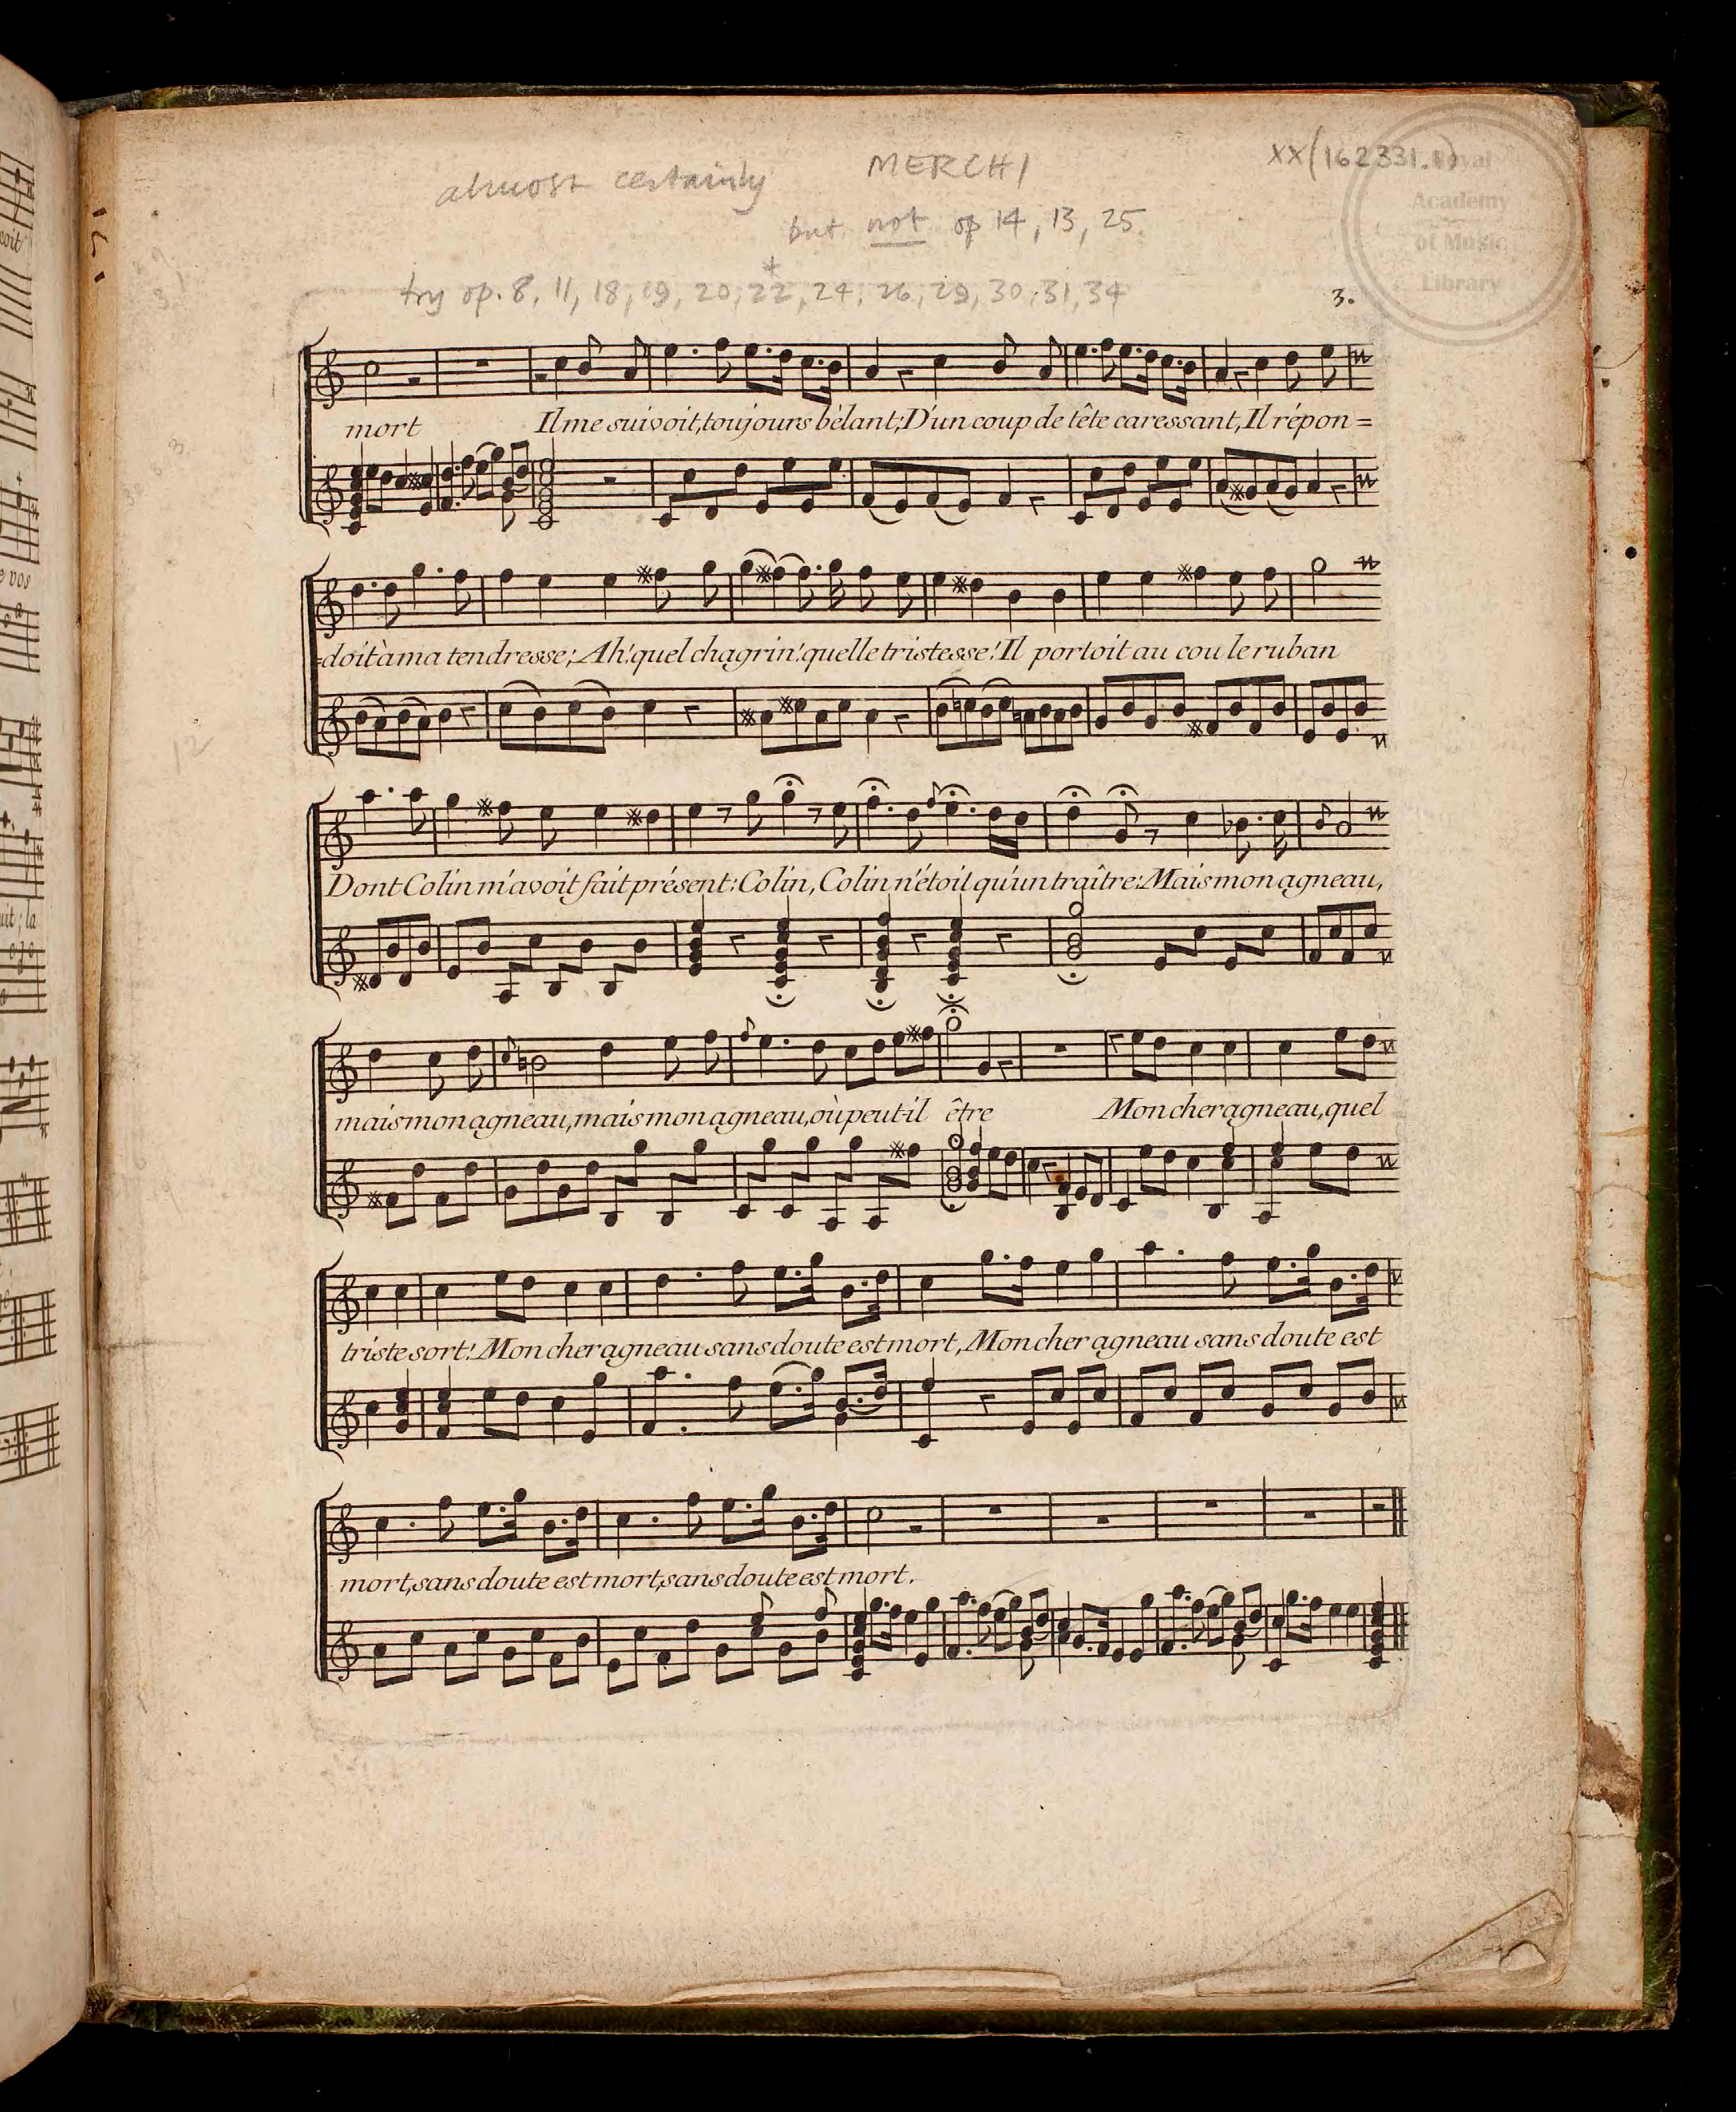 almost certainly MERCHI
but not op 14, 13, 25.
*
try op. 8, 11, 18, 19, 20, 22, 24, 26, 29, 30, 31, 34
XX(162331.1)
Royal
Academy
of Music
Library
3.
mort Il me suivoit, toujours bêlant; D'un coup de tête caressant, Il répon=
=doit à ma tendresse; Ah! quel chagrin! quelle tristesse! Il portoit au cou le ruban
Dont Colin m'avoit fait présent: Colin, Colin n'étoit qu'un traître: Mais mon agneau,
mais mon agneau, mais mon agneau, où peut-il être Mon cher agneau, quel
triste sort! Mon cher agneau sans doute est mort, Mon cher agneau sans doute est
mort, sans doute est mort, sans doute est mort.
12
e vos
uit; la